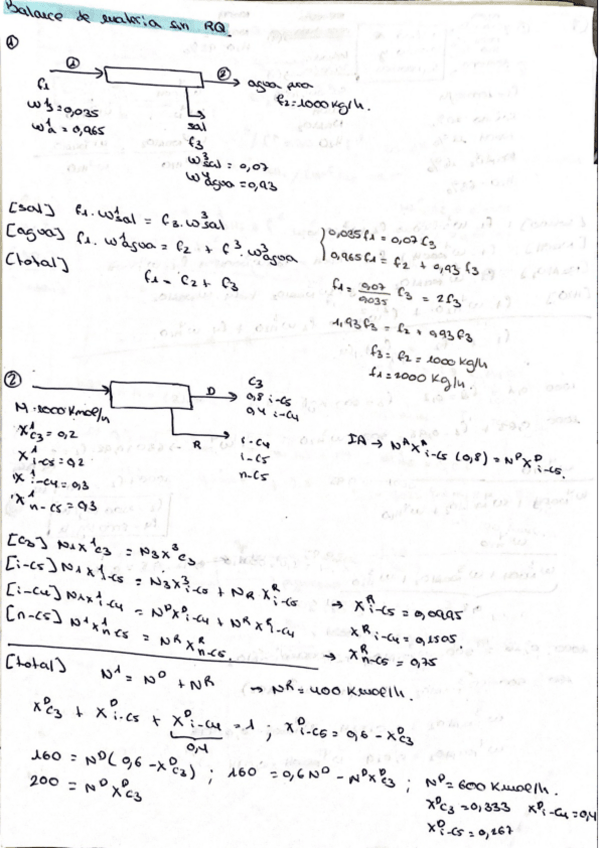 Balance de materia sin RQ
①
① ② agua pura
f1 f2=1000 kg/h.
w¹s=0,035 sal
w¹a=0,965 f3
w³sal=0,07
w⁴agua=0,93
[sal] f1·w¹sal = f3·w³sal
[agua] f1·w¹agua = f2 + f³·w³agua
[total] f1 = f2 + f3
0,035f1=0,07f3
0,965f1=f2 + 0,93f3
f1=0,07/0,035 f3 = 2f3
1,93f3=f2+0,93f3
f3=f2=1000 kg/h
f1=2000 kg/h.
②
D C3
0,8 i-C5
0,4 i-C4
N=1000 Kmol/h
X¹C3=0,2
X¹i-C5=0,2
X¹i-C4=0,3
X¹n-C5=0,3
R i-C4
i-C5
n-C5
IA → NᴬXᴬi-C5 (0,8)=NᴰXᴰi-C5.
[C3] N1X¹C3 = N3X³C3
[i-C5] N1X¹i-C5 = N3X³i-C5 + NR Xᴿi-C5 → Xᴿi-C5=0,0995
[i-C4] N1X¹i-C4 = NᴰXᴰi-C4 + NᴿXᴿi-C4 Xᴿi-C4=0,1505
[n-C5] N¹X¹n-C5 = NᴿXᴿn-C5. → Xᴿn-C5=0,75
[total] N¹ = Nᴰ + Nᴿ → Nᴿ=400 Kmol/h.
XᴰC3 + Xᴰi-C5 + Xᴰi-C4=1 ; Xᴰi-C5=0,6-XᴰC3
0,4
160=Nᴰ(0,6-XᴰC3) ; 160=0,6Nᴰ-NᴰXᴰC3 ; Nᴰ=600 Kmol/h.
200=NᴰXᴰC3 XᴰC3=0,333 Xᴰi-C4=0,4
Xᴰi-C5=0,267